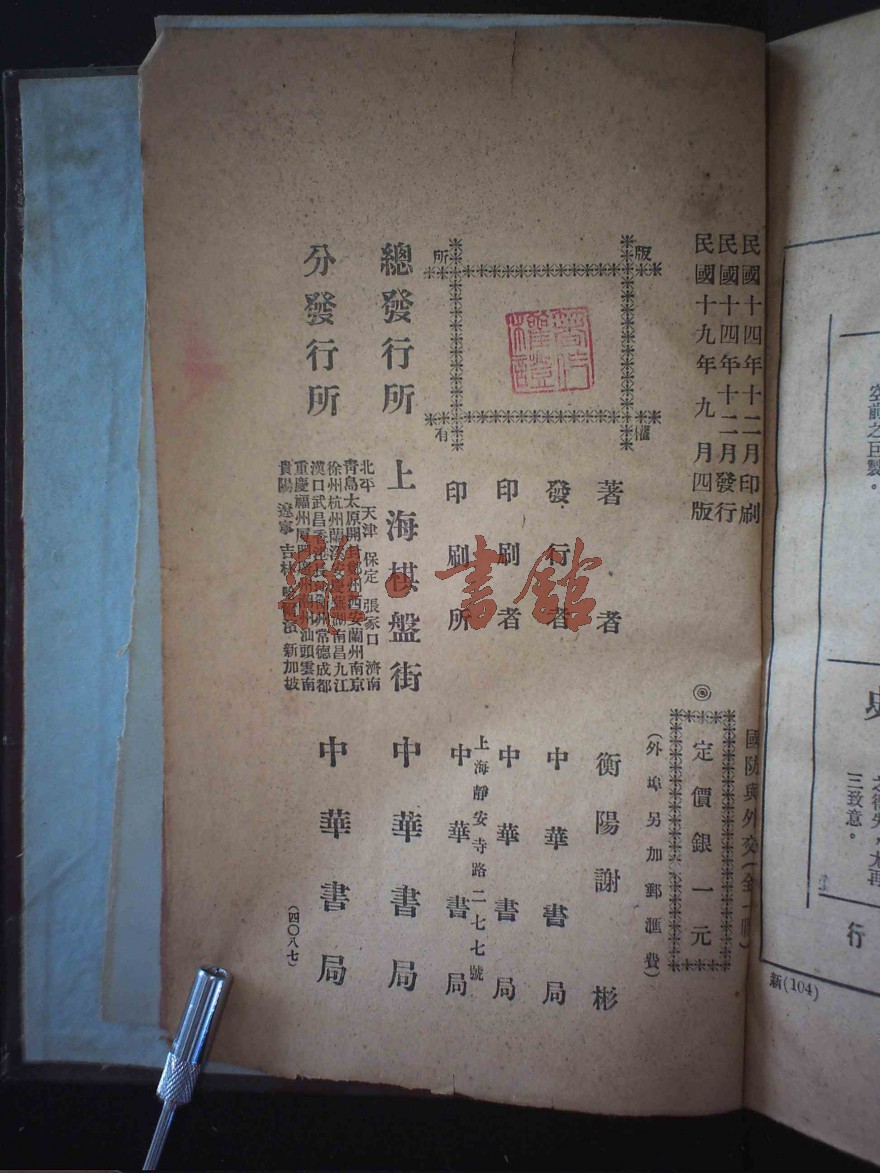 民國十四年十二月印刷
民國十四年十二月發行
民國十九年九月四版
國防與外交(全一冊)
◎定價銀一元
(外埠另加郵滙費)
版權所有
著者 衡陽謝彬
發行者 中華書局
印刷者 中華書局
上海靜安寺路二七七號
印刷所 中華書局
總發行所 上海棋盤街 中華書局
分發行所 中華書局
北平 天津 保定 張家口 濟南
青島太原開封鄭州西安蘭州南京
徐州杭州蘭谿安慶蕪湖南昌九江
漢口武昌 常德成都
重慶福州 汕頭雲南
貴陽 遼寧 吉林 新加坡
(四〇八七)
書館
空前之巨製。
三致意。
行
新(104)